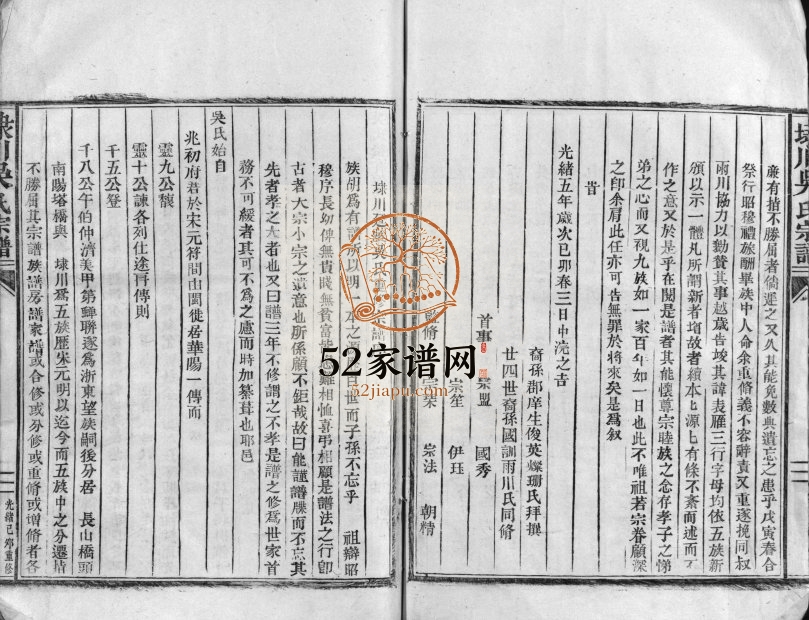 廉有指不勝屈者倘遲之又久其能免數典遺忘之患乎戊寅春合
祭行昭穆禮族酬畢族中人命余重脩義不容辭責又重逐挽同叔
雨川協力以勷贊其事越歲告竣其諱表雁三行字母均依五族新
頒以示一體凡所謂新者增故者續本上源上有條不紊而述而不
作之意又於是乎在閱是譜者其能懷尊宗睦族之念存孝子之悌
弟之心而又視九族如一家百年如一日也此不唯祖若宗眷顧深
之卽余肩此任亦可告無罪於將來矣是爲叙
昔
光緒五年歲次己卯春三日中浣之吉
裔孫郡庠生俊英燦珊氏拜撰
廿四世裔孫國訓雨川氏同脩
首事
宗盟 國秀
宗笙 伊珏
宗法 朝精
埭川
族胡爲有 所以明一本之源百世而子孫不忘乎 祖辯昭
穆序長幼俾無貴賤無貧富 難相恤喜弔相顧是譜法之行卽
古者大宗小宗之遺意也所係顧不鉅哉故曰能謹譜牒而不忘其
先者孝之大者也又曰譜三年不修謂之不孝是譜之修爲世家首
務不可緩者其可不爲之慮而時加纂葺也耶
吳氏始自
兆初府君於宋元符間由閩徙居華陽一傳而
靈九公馥
靈十公諫各列仕途再傳則
千五公登
千八公午伯仲濟美甲第蟬聯遂爲浙東望族嗣後分居 長山橋頭
南陽塔橋與 埭川爲五族歷宋元明以迄今而五族中之分遷指
不勝屈其宗譜族譜房譜家譜或合修或分修或重脩或增脩者各
埭川吳氏宗譜
光緒己夘重修
52家谱网
52jiapu.com